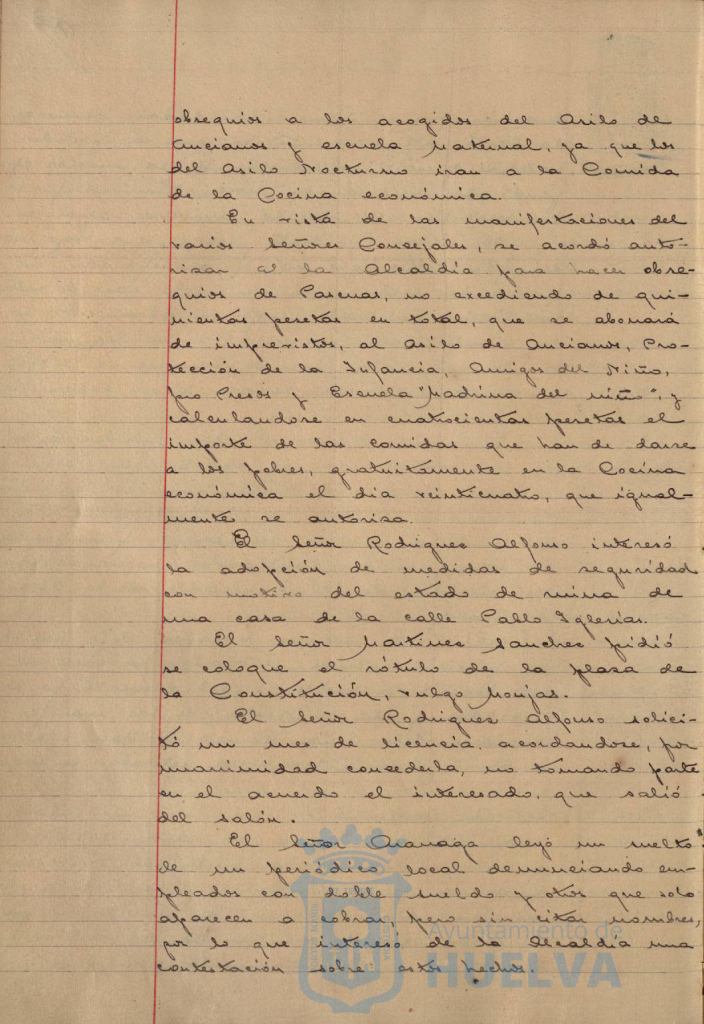 obsequios a los acogidos del Asilo de
Ancianos y escuela Maternal, ya que los
del Asilo Nocturno iran a la Comida
de la Cocina económica.
En vista de las manifestaciones del
varios Señores Concejales, se acordó auto-
rizar a la Alcaldía para hacer obse-
quios de Pascuas, no excediendo de qui-
nientas pesetas en total, que se abonará
de imprevistos, al Asilo de Ancianos, Pro-
tección de la Infancia, Amigos del Niño,
pro Presos y Escuela "Madrina del niño", y
calculandose en cuatrocientas pesetas el
importe de las comidas que han de darse
a los pobres, gratuitamente en la Cocina
económica el dia veinticuatro, que igual-
mente se autoriza.
El Señor Rodriguez Alfonso interesó
la adopción de medidas de seguridad
con motivo del estado de ruina de
una casa de la calle Pablo Iglesias.
El Señor Martinez Sanchez pidió
se coloque el rótulo de la plaza de
la Constitución, vulgo Monjas.
El Señor Rodriguez Alfonso solici-
tó un mes de licencia acordandose, por
unanimidad concederla, no tomando parte
en el acuerdo el interesado, que salió
del salón.
El Señor leyó un suelto
de un periódico local denunciando em-
pleados con doble sueldo y otros que solo
aparecen a cobrar, pero sin citar nombres,
por lo que interesó de la Alcaldia una
contestación sobre estos hechos.
Ayuntamiento de
HUELVA